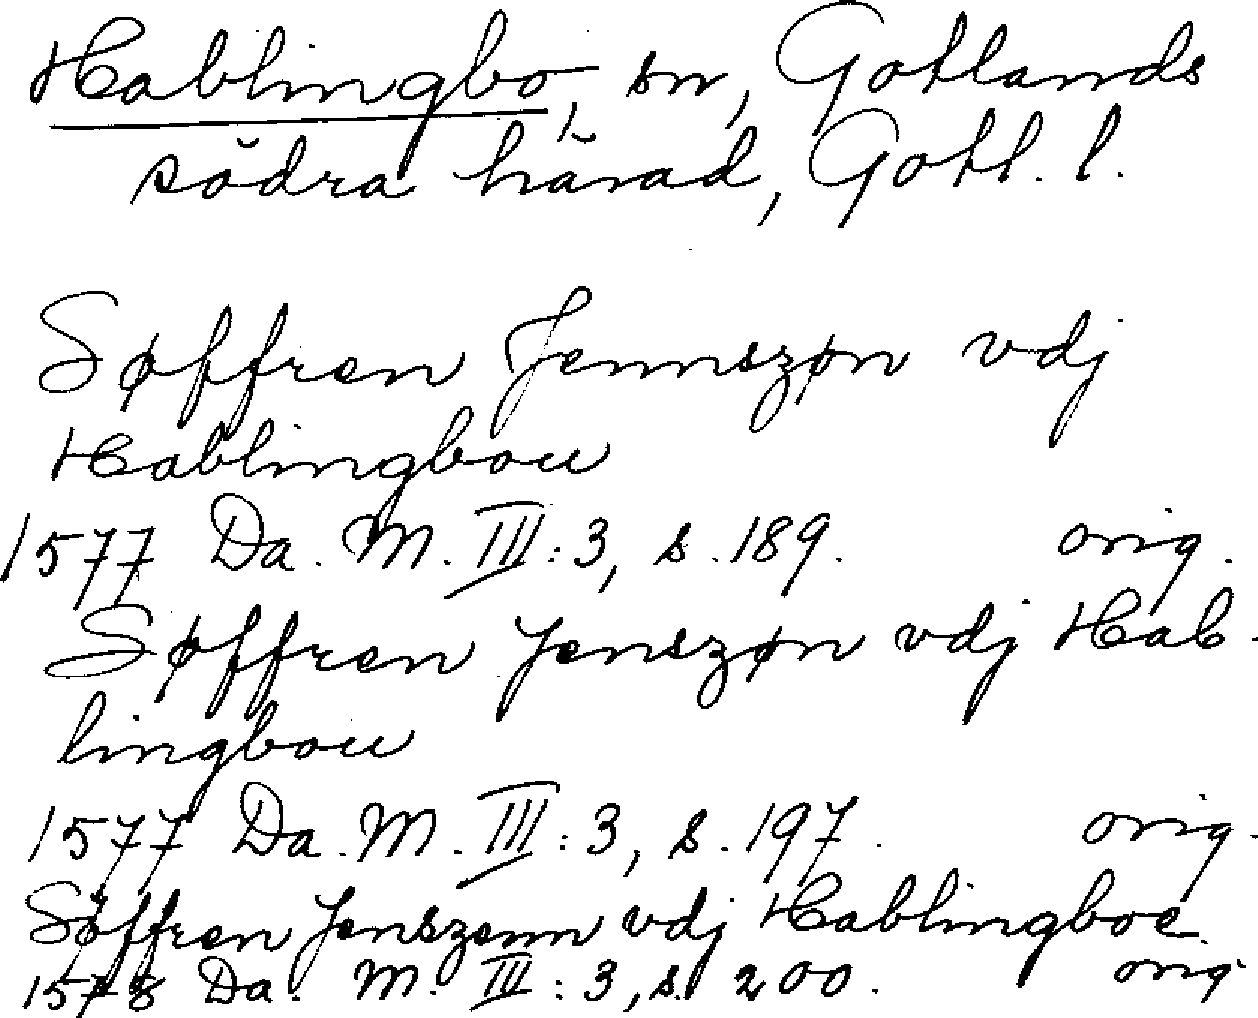 Hablingbo, sn, Gotlands
södra härad, Gotl. l.
Søffren Jennszøn vdj
Hablingbou
1577 Da. M. III: 3, s. 189. orig.
Søffren Jenszøn vdj Hab-
lingbou
1577 Da. M. III: 3, s. 197. orig.
Söffren Jenszenn vdj Hablingboe
1578 Da. M. III: 3, s. 200. orig.